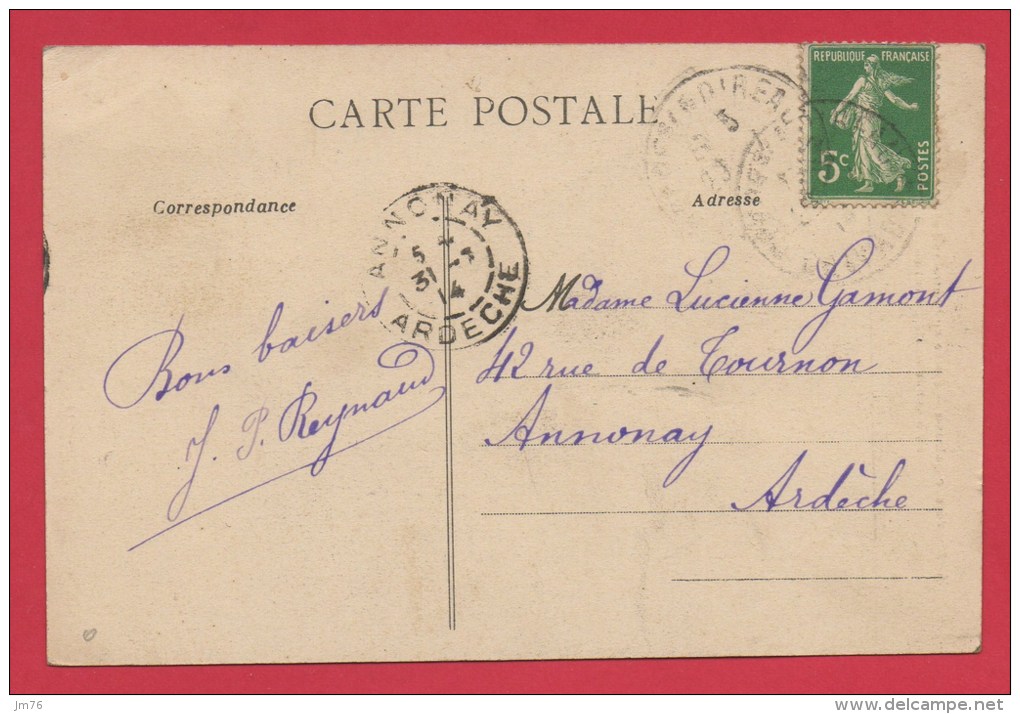 CARTE POSTALE
REPUBLIQUE FRANÇAISE
5c
POSTES
Correspondance
Adresse
ANNONAY
31
14
ARDECHE
Bons baisers
J. P. Reynaud
Madame Lucienne Gamont
42 rue de Tournon
Annonay
Ardèche
jm76
www.delcampe.net